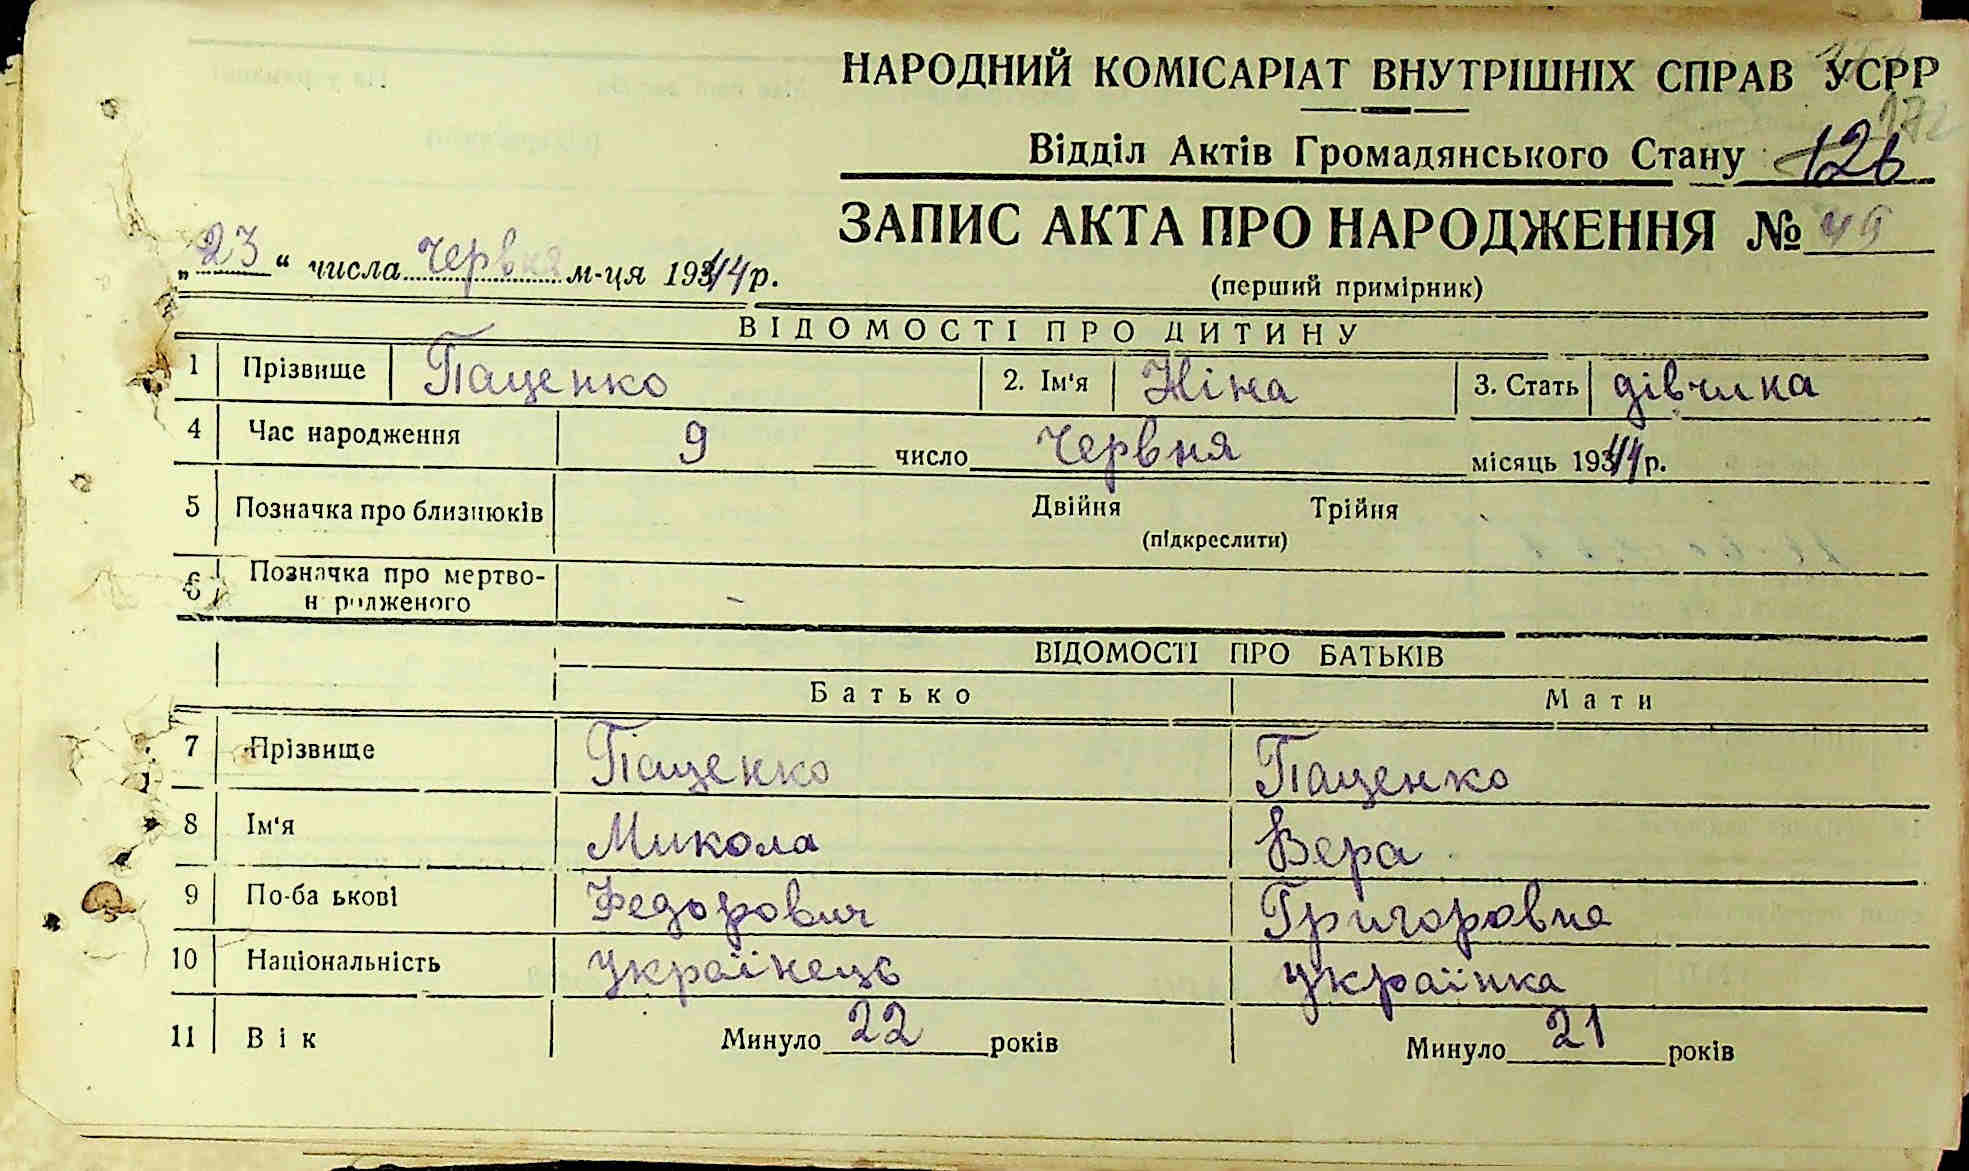 НАРОДНИЙ КОМІСАРІАТ ВНУТРІШНІХ СПРАВ УСРР
172
Відділ Актів Громадянського Стану 126
ЗАПИС АКТА ПРО НАРОДЖЕННЯ № 49
„23“ числа червня м-ця 1944 р.
(перший примірник)
ВІДОМОСТІ ПРО ДИТИНУ
1 Прізвище Паценко 2. Ім'я Ніна 3. Стать дівчинка
4 Час народження 9 число червня місяць 1944 р.
5 Позначка про близнюків Двійня Трійня
(підкреслити)
6 Позначка про мертво-
н родженого -
ВІДОМОСТІ ПРО БАТЬКІВ
Батько Мати
7 Прізвище Паценко Паценко
8 Ім'я Микола Вера
9 По-ба ькові Федорович Григоровна
10 Національність українець українка
11 Вік Минуло 22 років Минуло 21 років